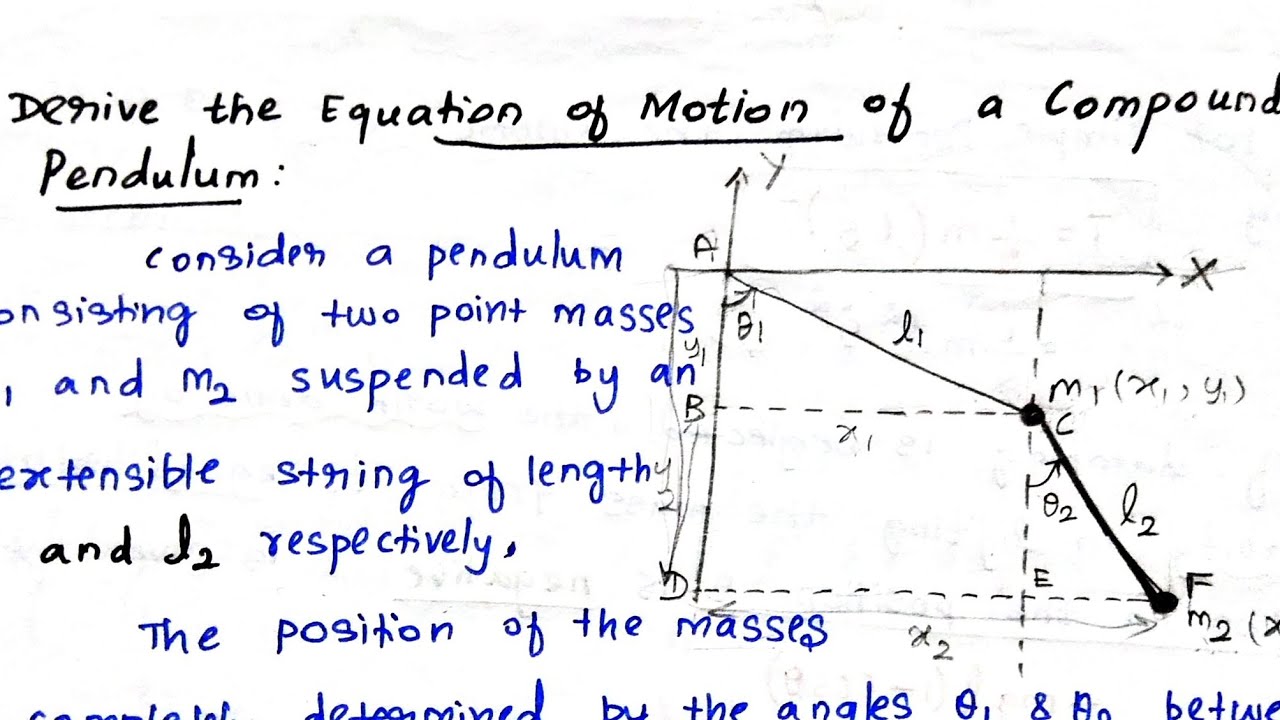 Derive the Equation of Motion of a Compound
Pendulum:
consider a pendulum
onsisting of two point masses
1 and m2 suspended by an
extensible string of length
and l2 respectively.
The position of the masses
determined by the angles θ1 &
Y
A
X
θ1
l1
y1
B
x1
m1 (x1, y1)
C
y2
θ2
l2
D
E
F
x2
m2 (x